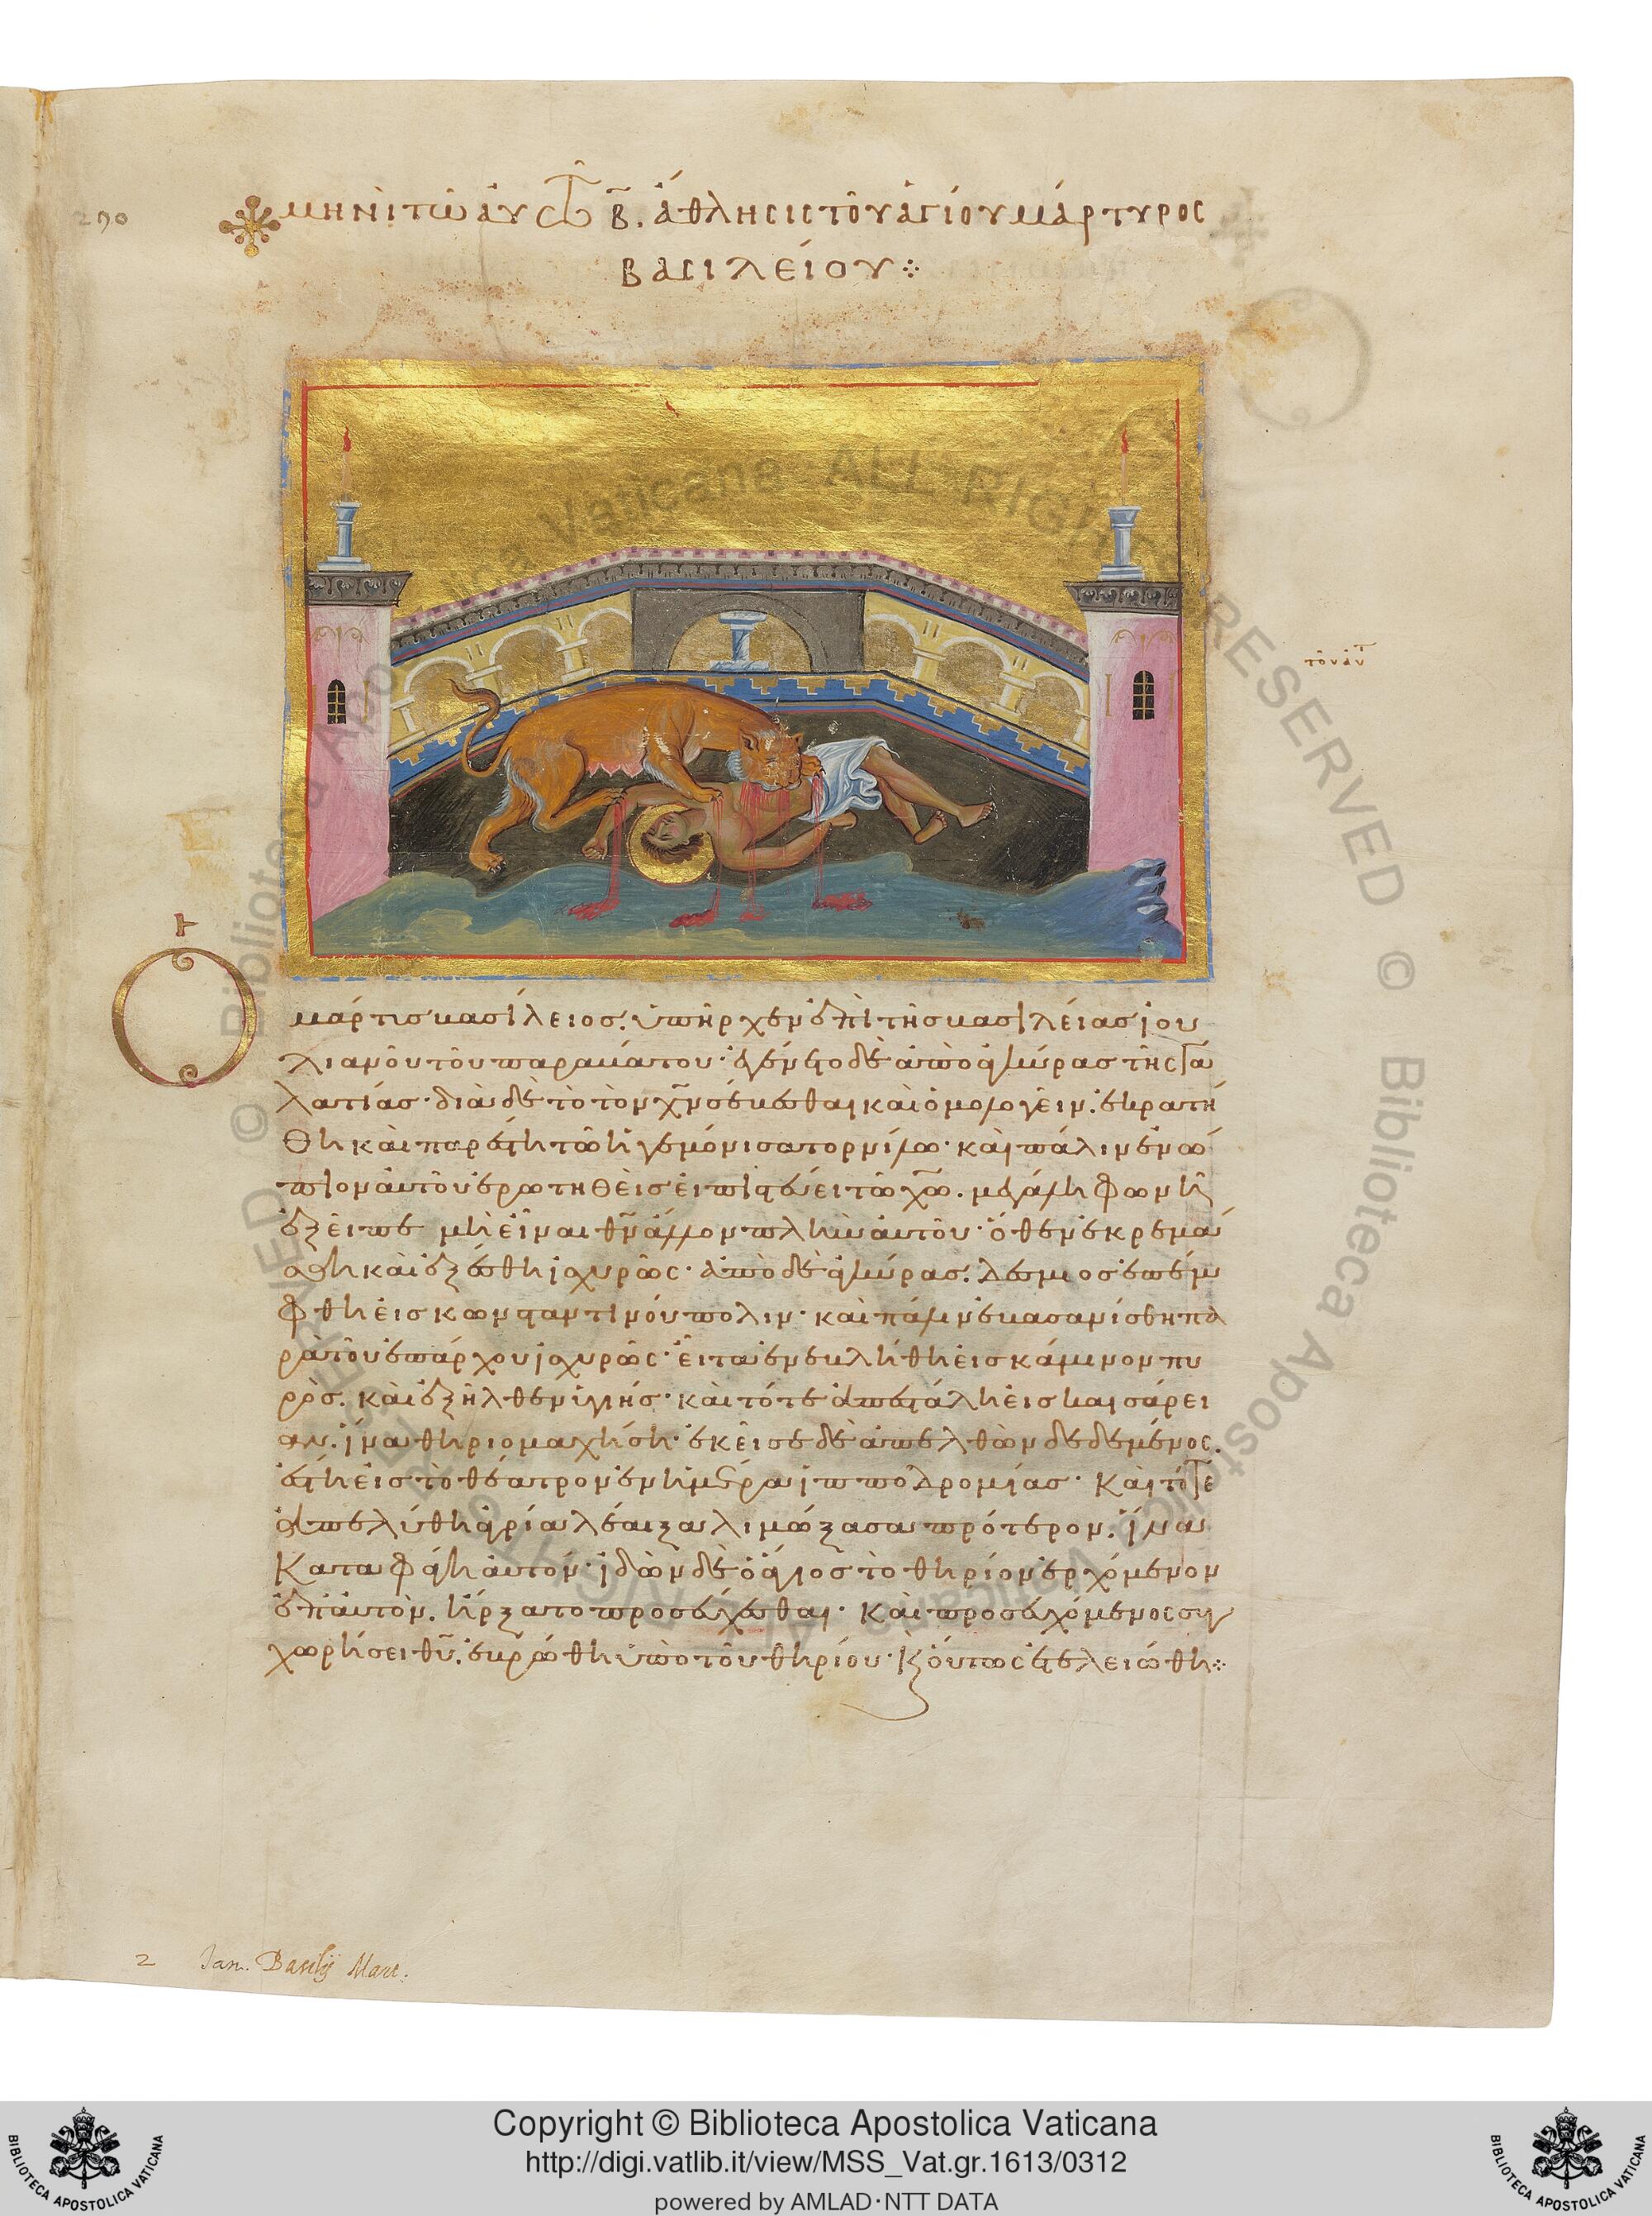 290
μηνὶ τῶ αὐτῶ β̄. ἄθλησις τοῦ ἁγίου μάρτυρος
βασιλείου
τοῦ αὐτ
Ὁ
μάρτυς βασίλειος, ὑπῆρχεν ἐπὶ τῆς βασιλείας ἰου
λιανοῦ τοῦ παραβάτου· ἐγένετο δὲ ἀπὸ ἀγκύρας τῆς γα
λατίας· διὰ δὲ τὸ τὸν χ̄ν σέβεσθαι καὶ ὁμολογεῖν, ἐκρατή
θη καὶ παρέστη τῶ ἡγεμόνι σατορνίλω· καὶ πάλιν ἐνώ
πιον αὐτοῦ ἐρωτηθεὶς εἰ πιστεύει τῶ χ̄ω. μεγάλη φωνῆ
ἐξεῖπε μὴ εἶναι θ̄ν ἄλλον πλὴν αὐτοῦ· ὅθεν ἐκρεμά
σθη καὶ ἐξέσθη ἰσχυρῶς· ἀπὸ δὲ ἀγκύρας, δέσμιος ἐπέμ
φθη εἰς κωνσταντινούπολιν· καὶ πάλιν ἐβασανίσθη πα
ρὰ τοῦ ἐπάρχου ἰσχυρῶς· εἶτα ἐνεβλήθη εἰς κάμινον πυ
ρός. καὶ ἐξῆλθεν ὑγιής· καὶ τότε ἀπεστάλη εἰς καισάρει
αν, ἵνα θηριομαχήση· ἐκεῖσε δὲ ἀπελθὼν δεδεμένος,
ἔστη εἰς τὸ θέατρον ἐν ἡμέρα ἱπποδρομίας· Καὶ τότε
ἀπελύθη ἀγρία λέαινα λιμώξασα πρότερον, ἵνα
Καταφάγη αὐτόν· ἰδὼν δὲ ὁ ἅγιος τὸ θηρίον ἐρχόμενον
ἐπ' αὐτὸν, ἤρξατο προσεύχεσθαι· Καὶ προσευχόμενος συγ
χωρήσει θ̄υ, ἐβρώθη ὑπὸ τοῦ θηρίου· Κ οὕτως ἐτελειώθη
2 Jan. Basilij Mart.
© Biblioteca Apostolica Vaticana ALL RIGHTS RESERVED
Copyright © Biblioteca Apostolica Vaticana
http://digi.vatlib.it/view/MSS_Vat.gr.1613/0312
powered by AMLAD·NTT DATA
BIBLIOTECA APOSTOLICA VATICANA
BIBLIOTECA APOSTOLICA VATICANA